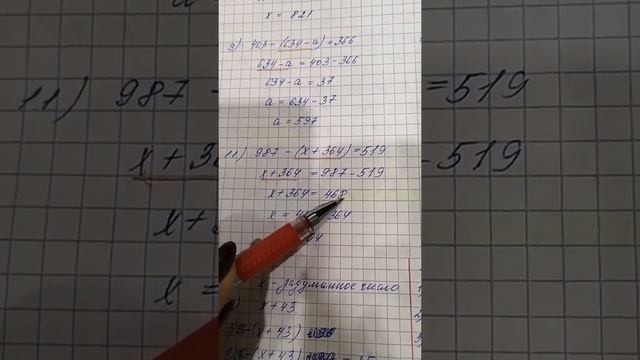 x = 821
9) 403 - (634 - a) = 366
634 - a = 403 - 366
634 - a = 37
a = 634 - 37
a = 597
11) 987 - (x + 364) = 519
x + 364 = 987 - 519
x + 364 = 468
x = 4 364
x - задуманное число
x + 43
(x + 43)
(x + 43)